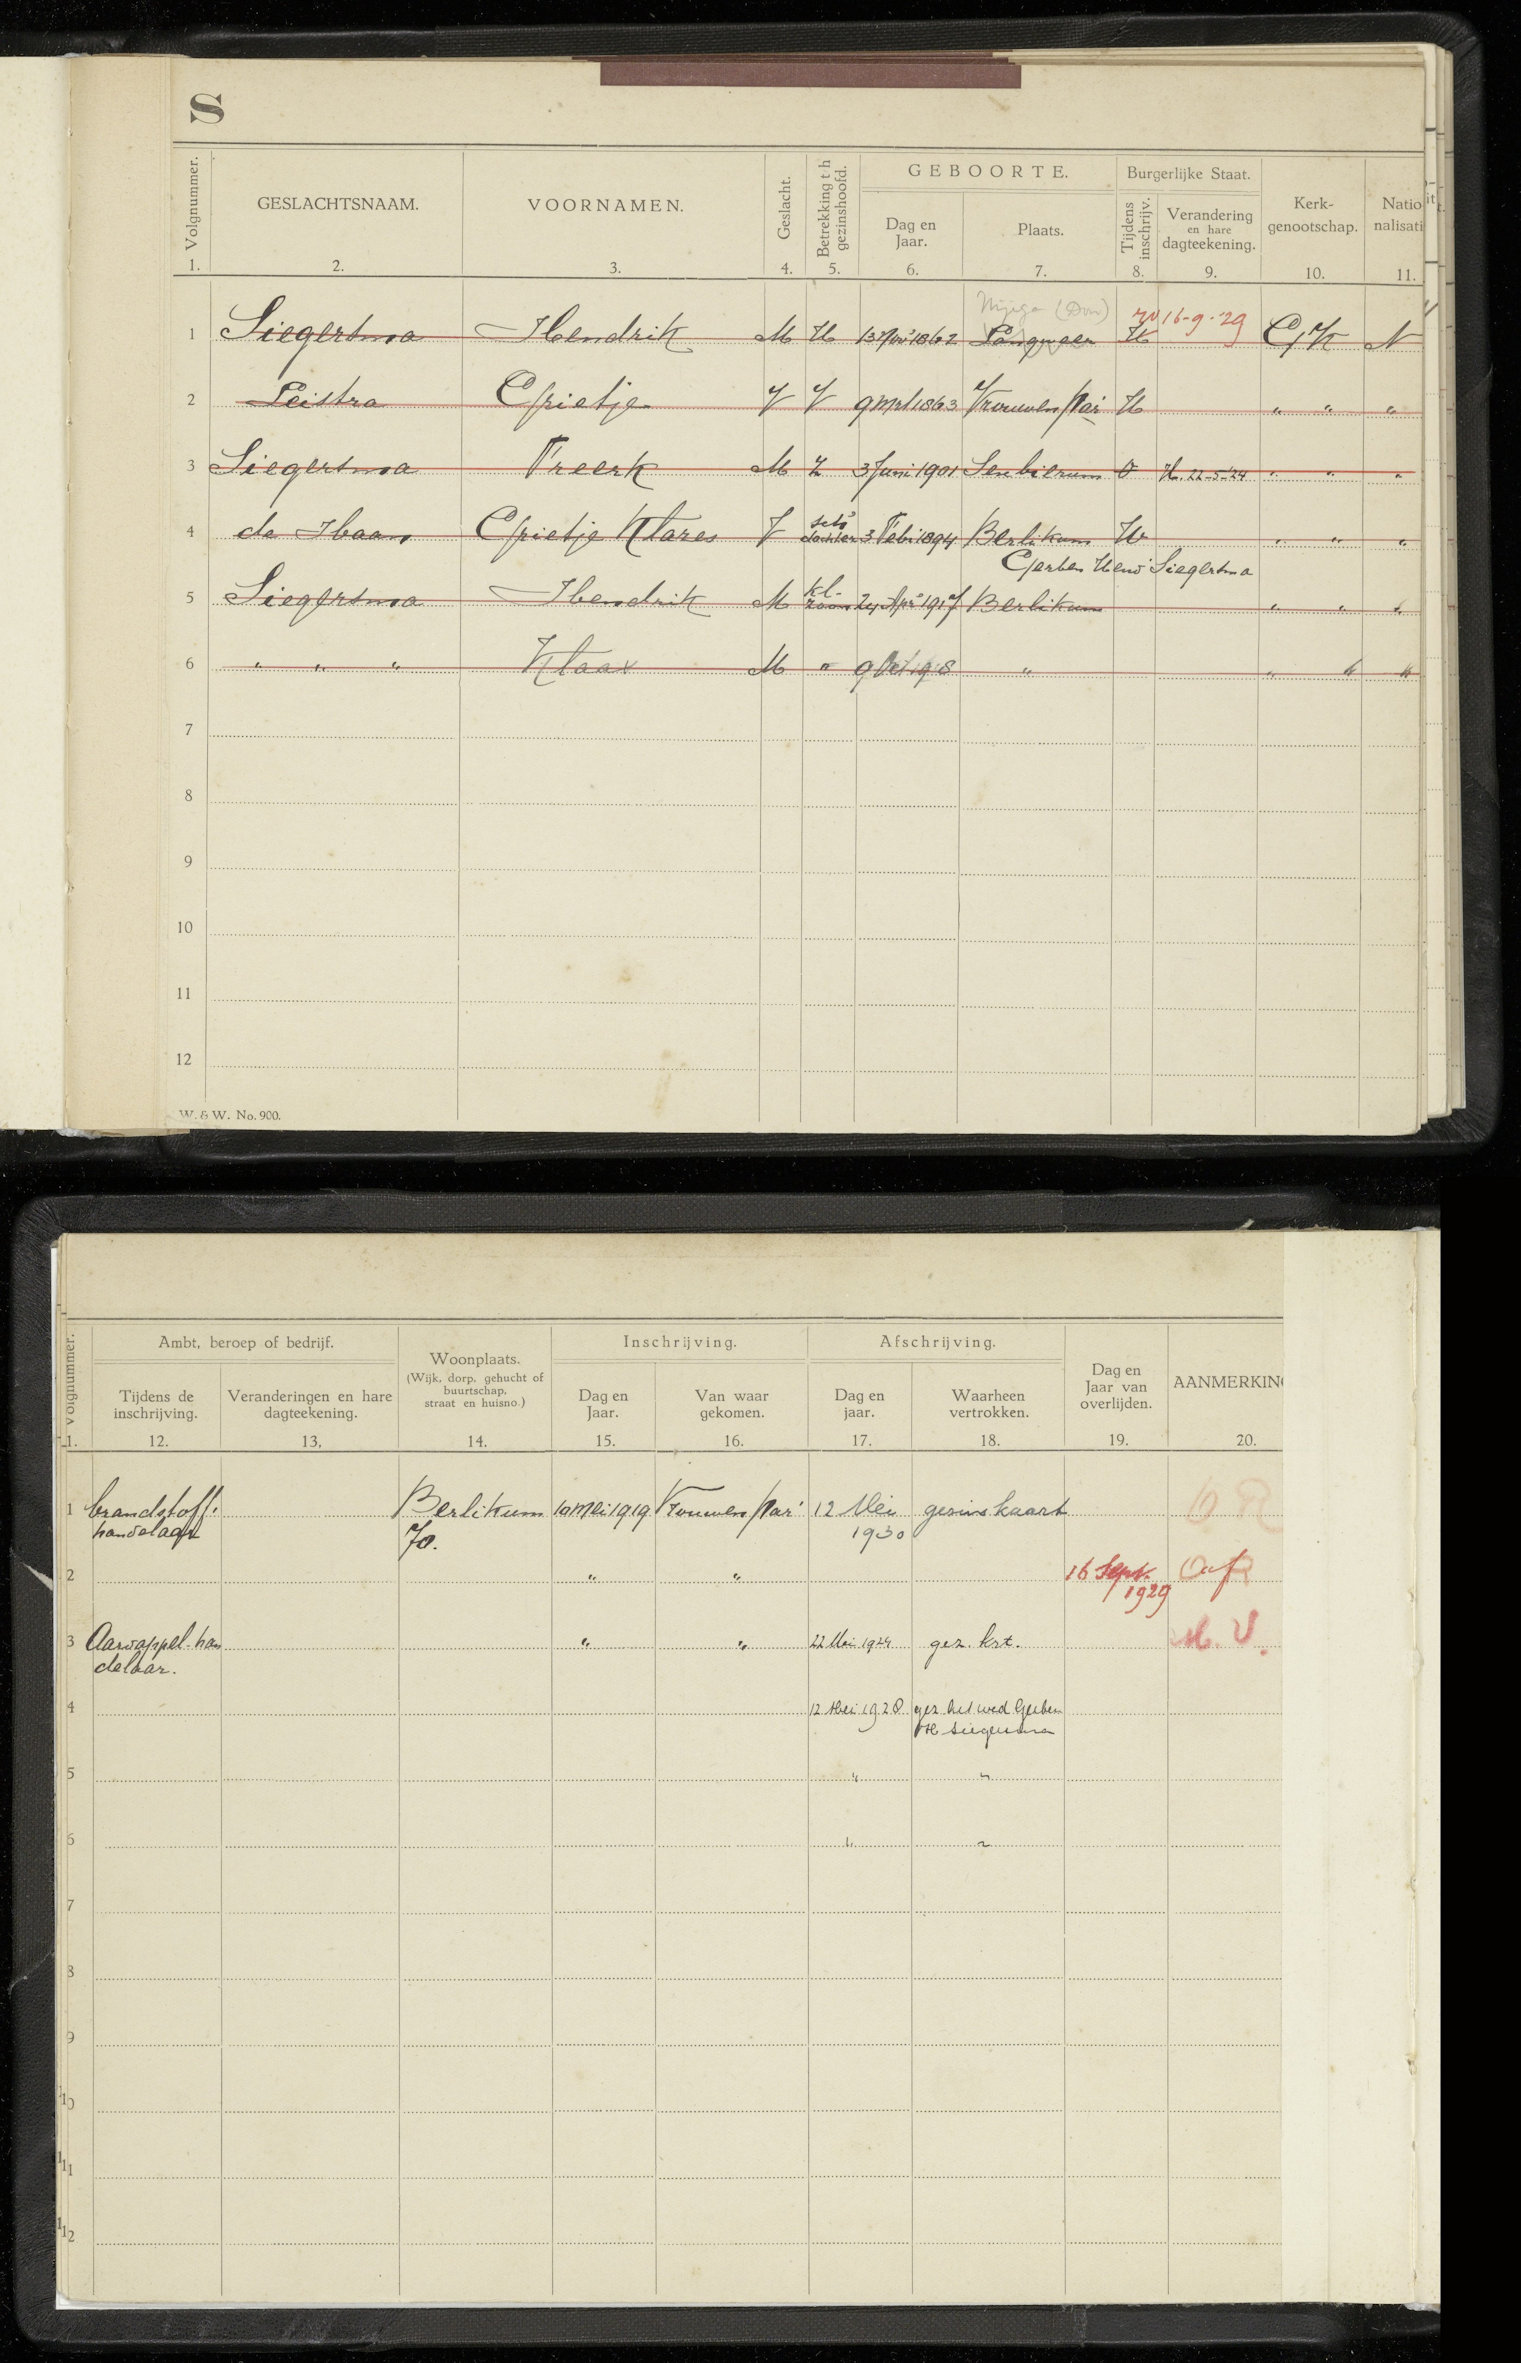 S
Volgnummer. GESLACHTSNAAM. VOORNAMEN. Geslacht. Betrekking t h gezinshoofd. GEBOORTE. Dag en Jaar. Plaats. Burgerlijke Staat. Tijdens inschrijv. Verandering en hare dagteekening. Kerk-genootschap. Natio nalisati
1. 2. 3. 4. 5. 6. 7. 8. 9. 10. 11.
Nijega (
1 Siegersma Hendrik M H 13 1862 Langweer H W 16-9-'29 GK N
2 Leistra Grietje V V 9 Mrt 1863 Vrouwen Par. H " " "
3 Siegersma Freerk M Z 3 Juni 1901 Sexbierum O H. 22-5-'24 " " "
4 de Haan Grietje Klazes V dochter 3 Feb. 1894 Berlikum W " " "
Gerben Hend. Siegersma
5 Siegersma Hendrik M kl. zoon 24 Apr 1917 Berlikum " " "
6 " " " Klaas M " 9 Oct 1918 " " " "
7
8
9
10
11
12
W. & W. No. 900.
Volgnummer. Ambt, beroep of bedrijf. Tijdens de inschrijving. Veranderingen en hare dagteekening. Woonplaats. (Wijk, dorp, gehucht of buurtschap, straat en huisno.) Inschrijving. Dag en Jaar. Van waar gekomen. Afschrijving. Dag en jaar. Waarheen vertrokken. Dag en Jaar van overlijden. AANMERKING
1. 12. 13. 14. 15. 16. 17. 18. 19. 20.
1 brandstoff. Berlikum 10 Mei 1919 Vrouwen Par. 12 Mei gezinskaart
handelaar 70. 1930
2 " " 16 Sept.
1929
3 Aardappel-han " " 22 Mei 1924 gez. krt.
delaar.
4 12 Mei 1920 gez krt wed Gerben
H Siegersma
5 " "
6 " "
7
8
9
10
11
12